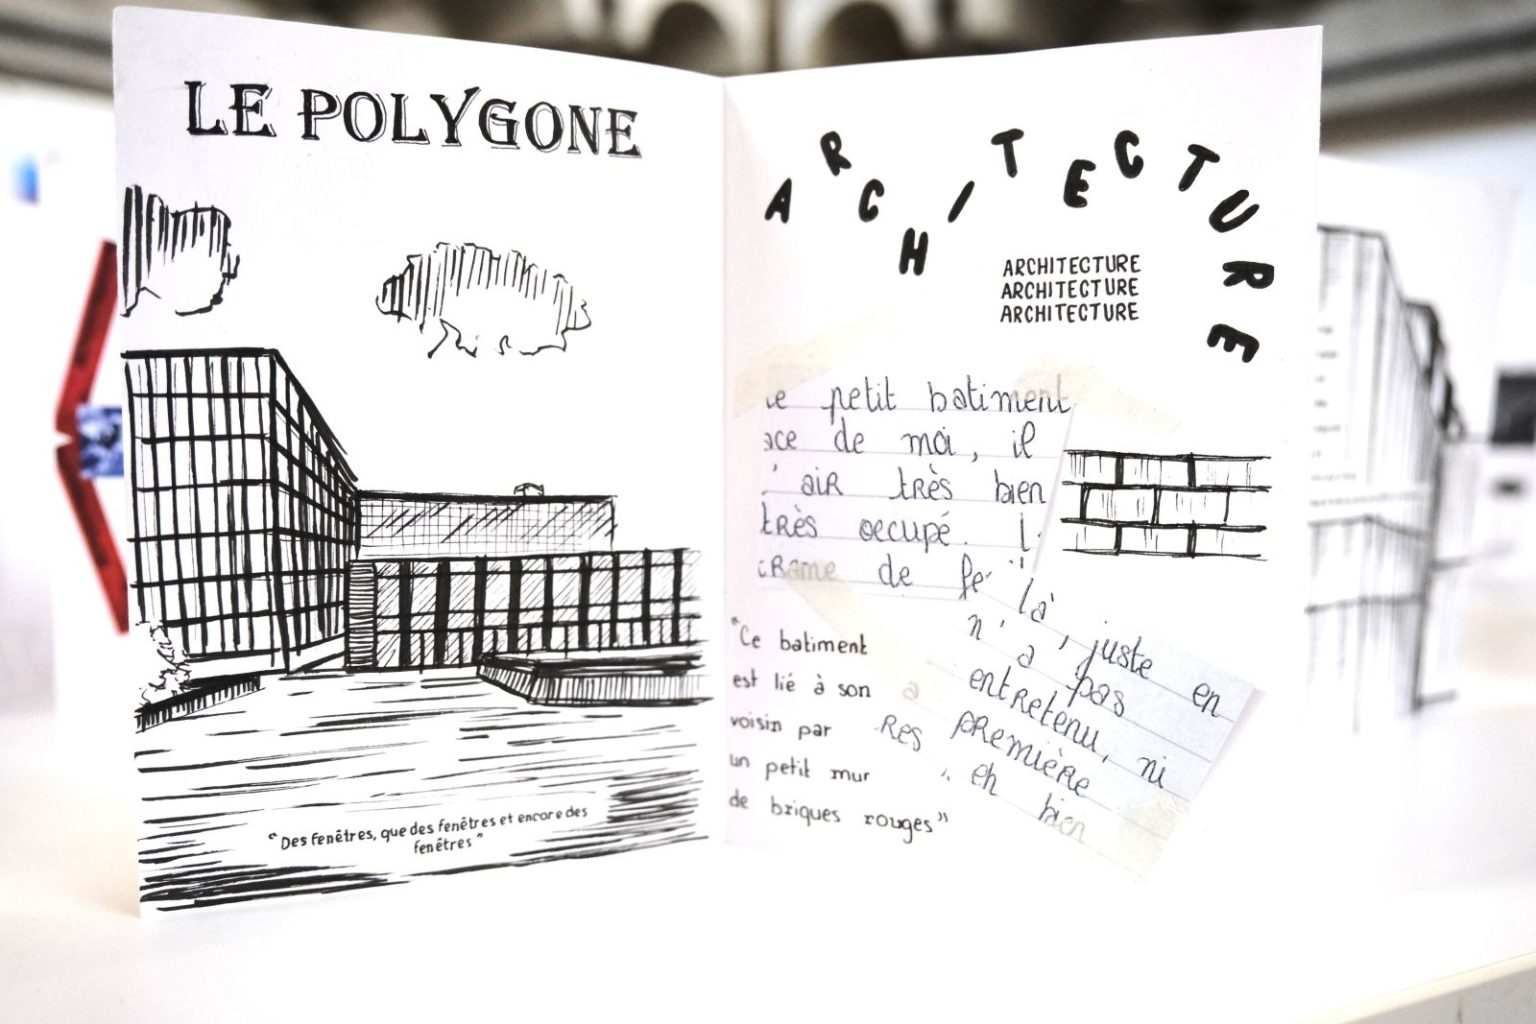 LE POLYGONE
" Des fenêtres, que des fenêtres et encore des
fenêtres "
ARCHITECTURE
ARCHITECTURE
ARCHITECTURE
ARCHITECTURE
petit batiment
de moi, il
air très bien
très occupé.
de
là, juste en
n'a pas
entretenu, ni
première
eh bien
"Ce batiment
est lié à son
voisin par
un petit mur
de briques rouges"